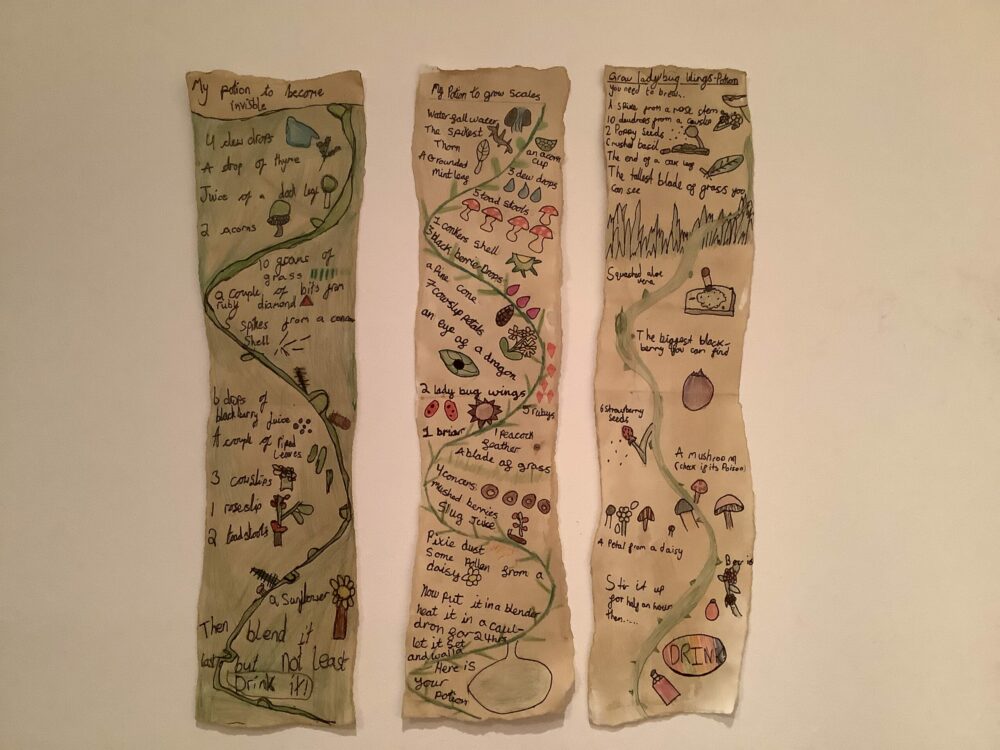 My potion to become
invisible
4 dew drops
A drop of thyme
Juice of a dock leaf
2 acorns
10 grains of
grass
a couple of bits from
ruby diamond
5 spikes from a
shell
6 drops of
blackburry juice
A couple of riped
leaves
3 cowslips
1 roseslip
2 toadstools
a Sunflower
Then blend it
last but not least
Drink it!
My Potion to grow scales
Waterfall water
The spikest
Thorn
an acorn
cup
A Grounded
Mint leaf
3 dew drops
5 toad stools
1 conkers shell
3 black berrie Drops
a Pine cone
7 cowslip petals
an eye of a dragon
2 lady bug wings
5 rubys
1 briar
1 Peacock
feather
A blade of grass
4 concers
mushed berries
Slug Juice
Pixie dust
Some Pollen from a
daisy
Now put it in a blender
heat it in a caul-
dron for 24hrs
let it set
and walla
Here is
your
potion
Grow ladybug Wings-Potion
you need to brew...
A spike from a rose stem
10 dewdrops from a cowslip
2 Poppy seeds
Crushed basil
The end of a oak leaf
The tallest blade of grass you
can see
Squashed aloe
vera
The biggest black-
berry you can find
6 strawberry
seeds
A mushroom
(check if its Poison)
A Petal from a daisy
Stir it up
for half an hour
then.....
DRINK